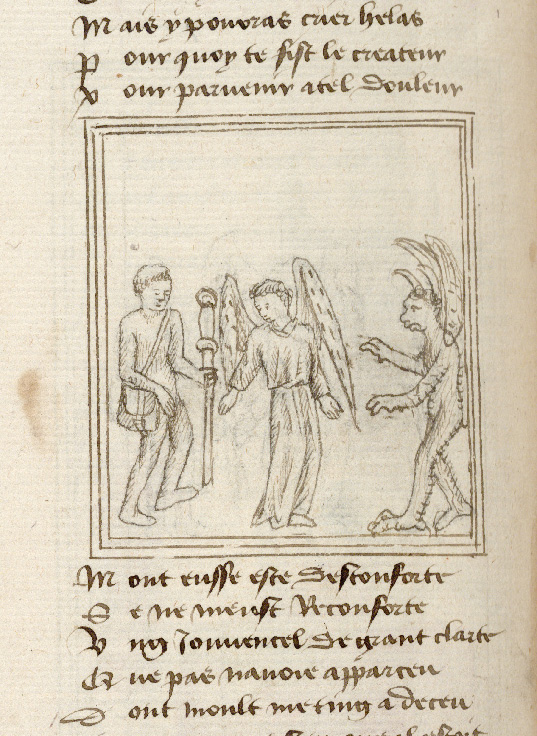 Mais y pouoras crier helas
Pour quoy te fist le createur
Pour paruenir a tel douleur
Mont eusse este desconforte
Se ne meust reconforte
Vng Jouuencel de grant clarte
Que pas nauoie apparceu
Dont moult me ting a deceu